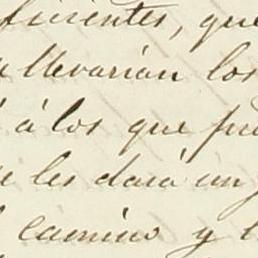 ficientes, que
llevarian los
á los que pu
e les dará un
camino y l